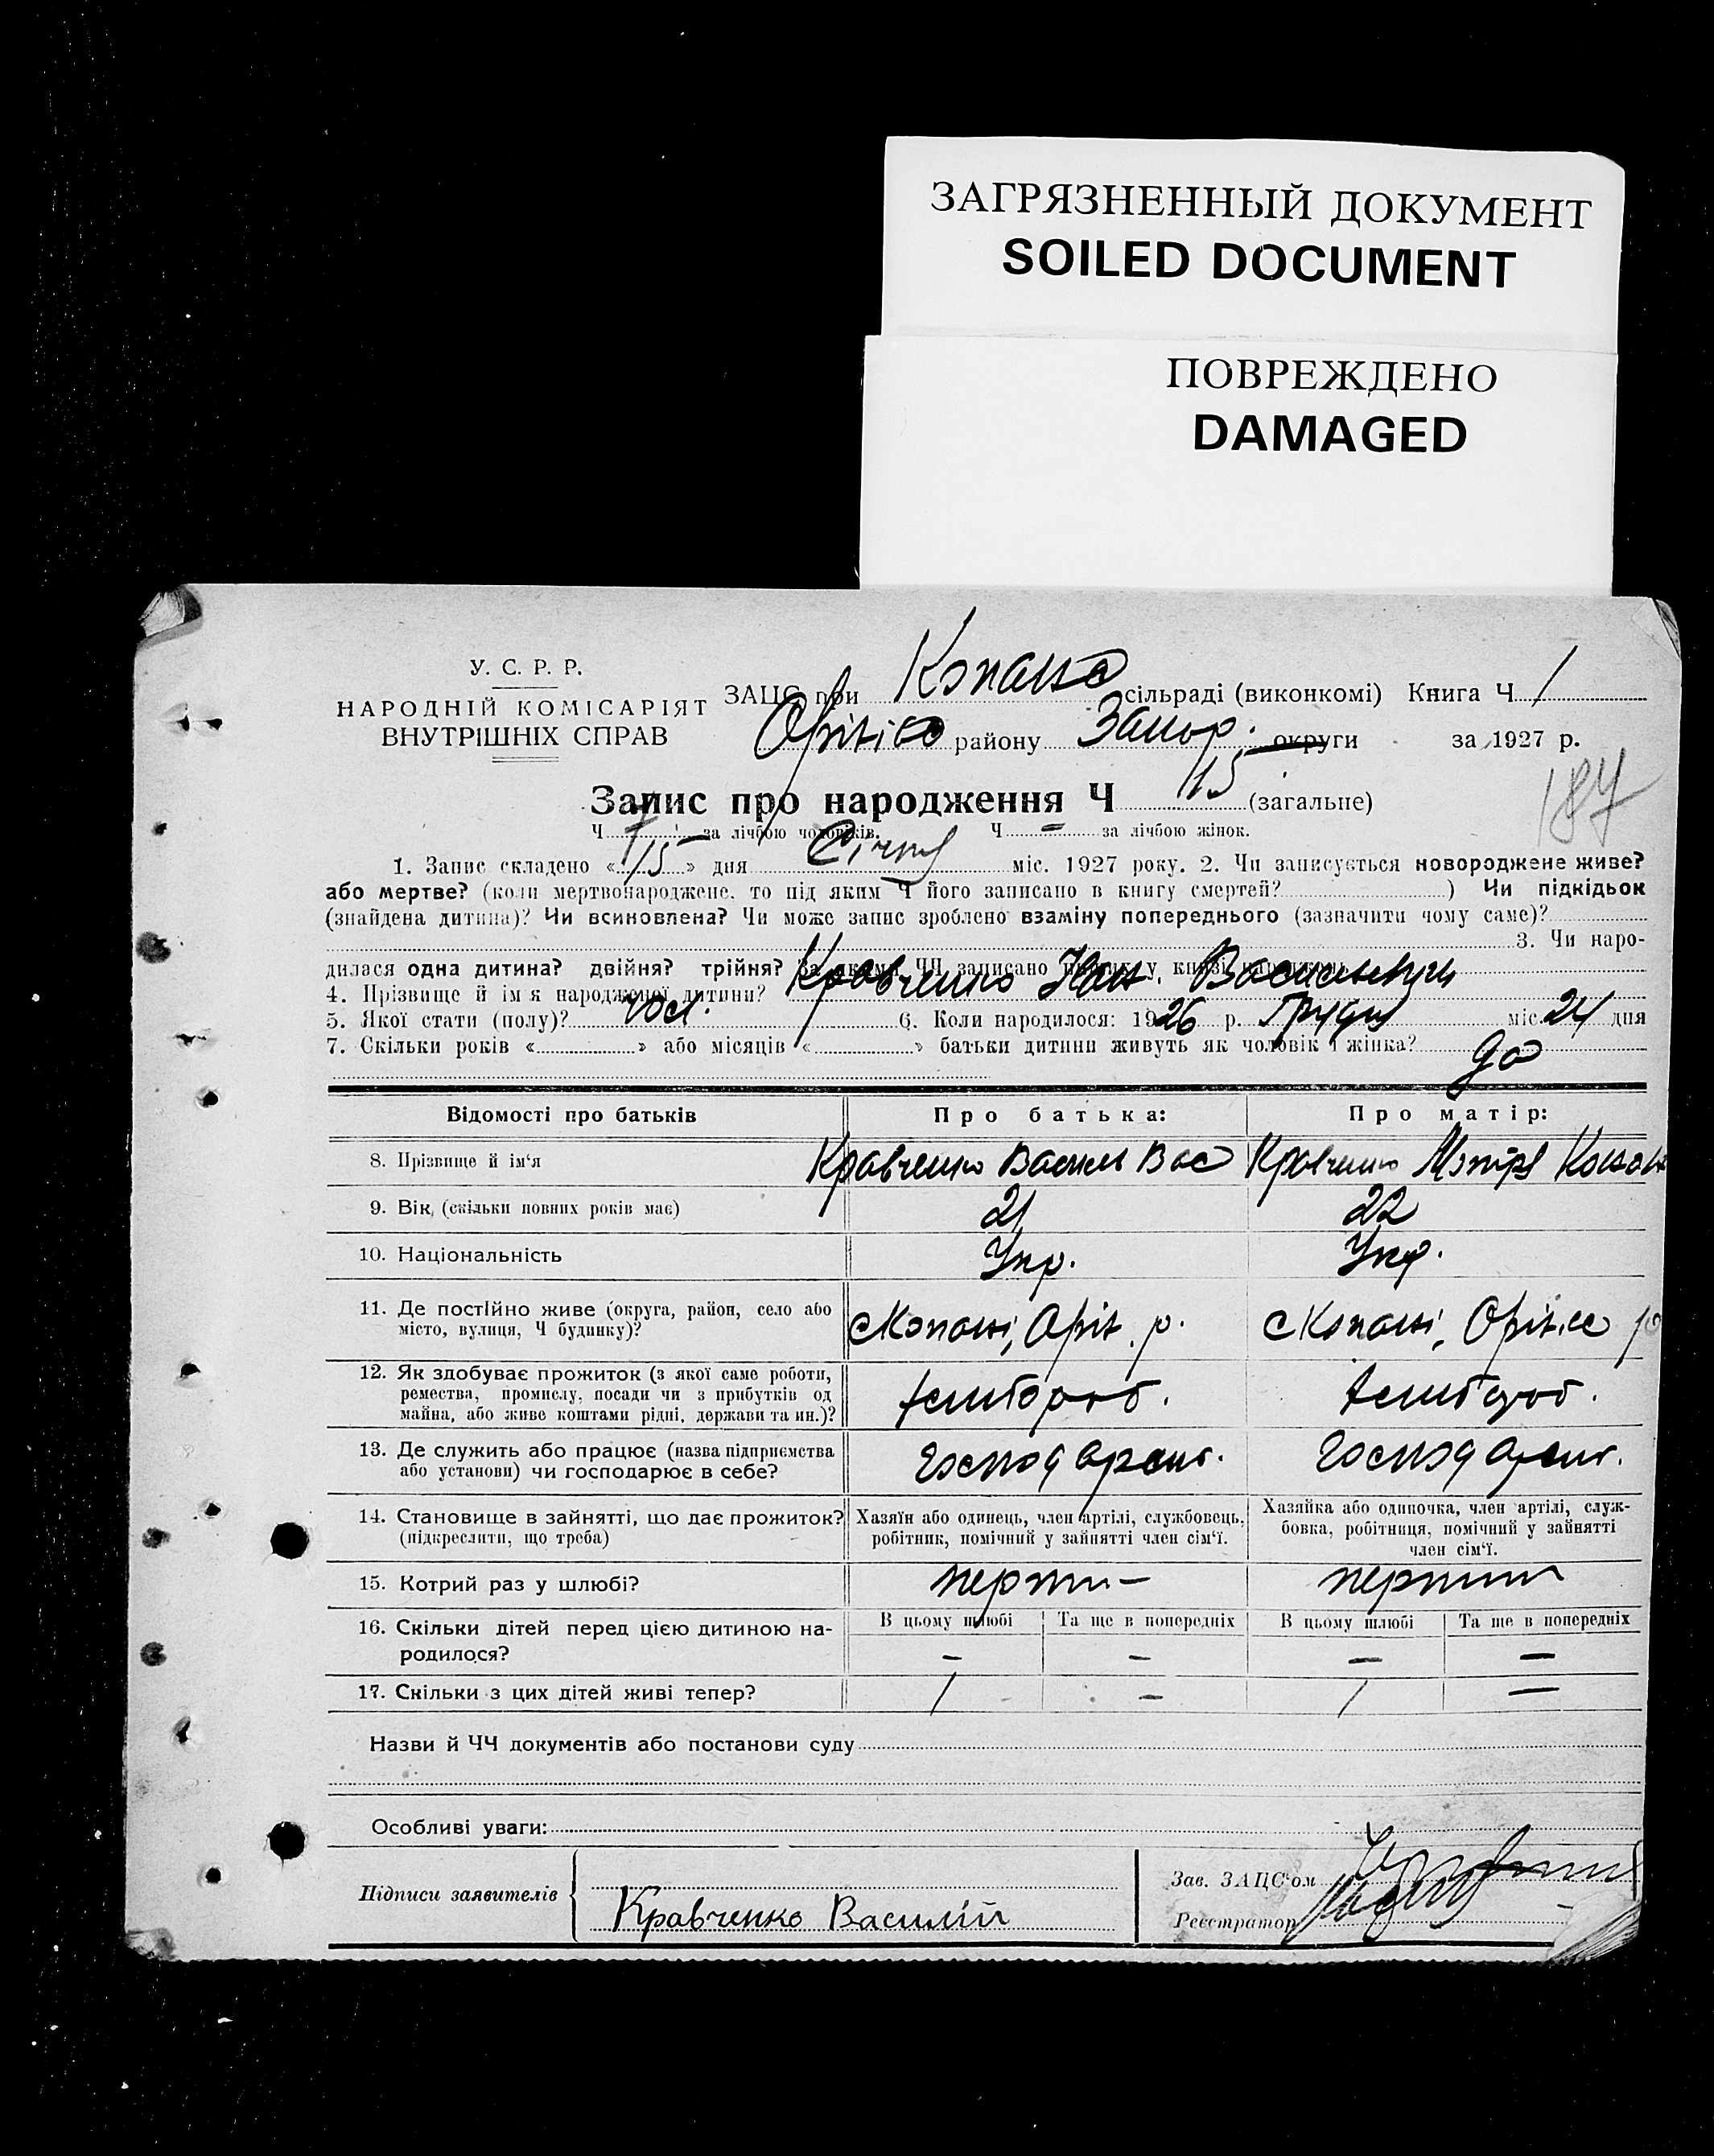 ЗАГРЯЗНЕННЫЙ ДОКУМЕНТ
SOILED DOCUMENT
ПОВРЕЖДЕНО
DAMAGED
У. С. Р. Р.
НАРОДНІЙ КОМІСАРІЯТ
ВНУТРІШНІХ СПРАВ
ЗАЦС при сільраді (виконкомі) Книга Ч 1
району Запор. округи за 1927 р.
187
Запис про народження Ч 15 (загальне)
Ч 7 за лічбою чоловіків. Ч — за лічбою жінок.
1. Запис складено «15» дня Січня міс. 1927 року. 2. Чи записується новороджене живе?
або мертве? (коли мертвонароджене, то під яким Ч його записано в книгу смертей? ) Чи підкідьок
(знайдена дитина)? Чи всиновлена? Чи може запис зроблено взаміну попереднього (зазначити чому саме)?
3. Чи наро-
дилася одна дитина? двійня? трійня? За якими ЧЧ записано
4. Прізвище й ім'я народженої дитини? Кравченко Іван Васильович
5. Якої стати (полу)? чол. 6. Коли народилося: 1926 р. Грудня міс. 24 дня
7. Скільки років « » або місяців « » батьки дитини живуть як чоловік і жінка?
Відомості про батьків Про батька: Про матір:
8. Прізвище й ім'я Кравченко Василь Вас Кравченко
9. Вік (скільки повних років має) 21 22
10. Національність Укр. Укр.
11. Де постійно живе (округа, район, село або
місто, вулиця, Ч будинку)? с Копані, Оріх. р. с Копані,
12. Як здобуває прожиток (з якої саме роботи,
ремества, промислу, посади чи з прибутків од
майна, або живе коштами рідні, держави та ин.)? хлібороб. хлібороб.
13. Де служить або працює (назва підприємства
або установи) чи господарює в себе?
14. Становище в зайнятті, що дає прожиток?
(підкреслити, що треба)
Хазяїн або одинець, член артілі, службовець,
робітник, помічний у зайнятті член сім'ї.
Хазяйка або одиночка, член артілі, служ-
бовка, робітниця, помічний у зайнятті
член сім'ї.
15. Котрий раз у шлюбі?
16. Скільки дітей перед цією дитиною на-
родилося?
В цьому шлюбі Та ще в попередніх В цьому шлюбі Та ще в попередніх
— — — —
17. Скільки з цих дітей живі тепер? 1 — 1 —
Назви й ЧЧ документів або постанови суду
Особливі уваги:
Підписи заявителів Кравченко Василій
Зав. ЗАЦС'ом
Реєстратор